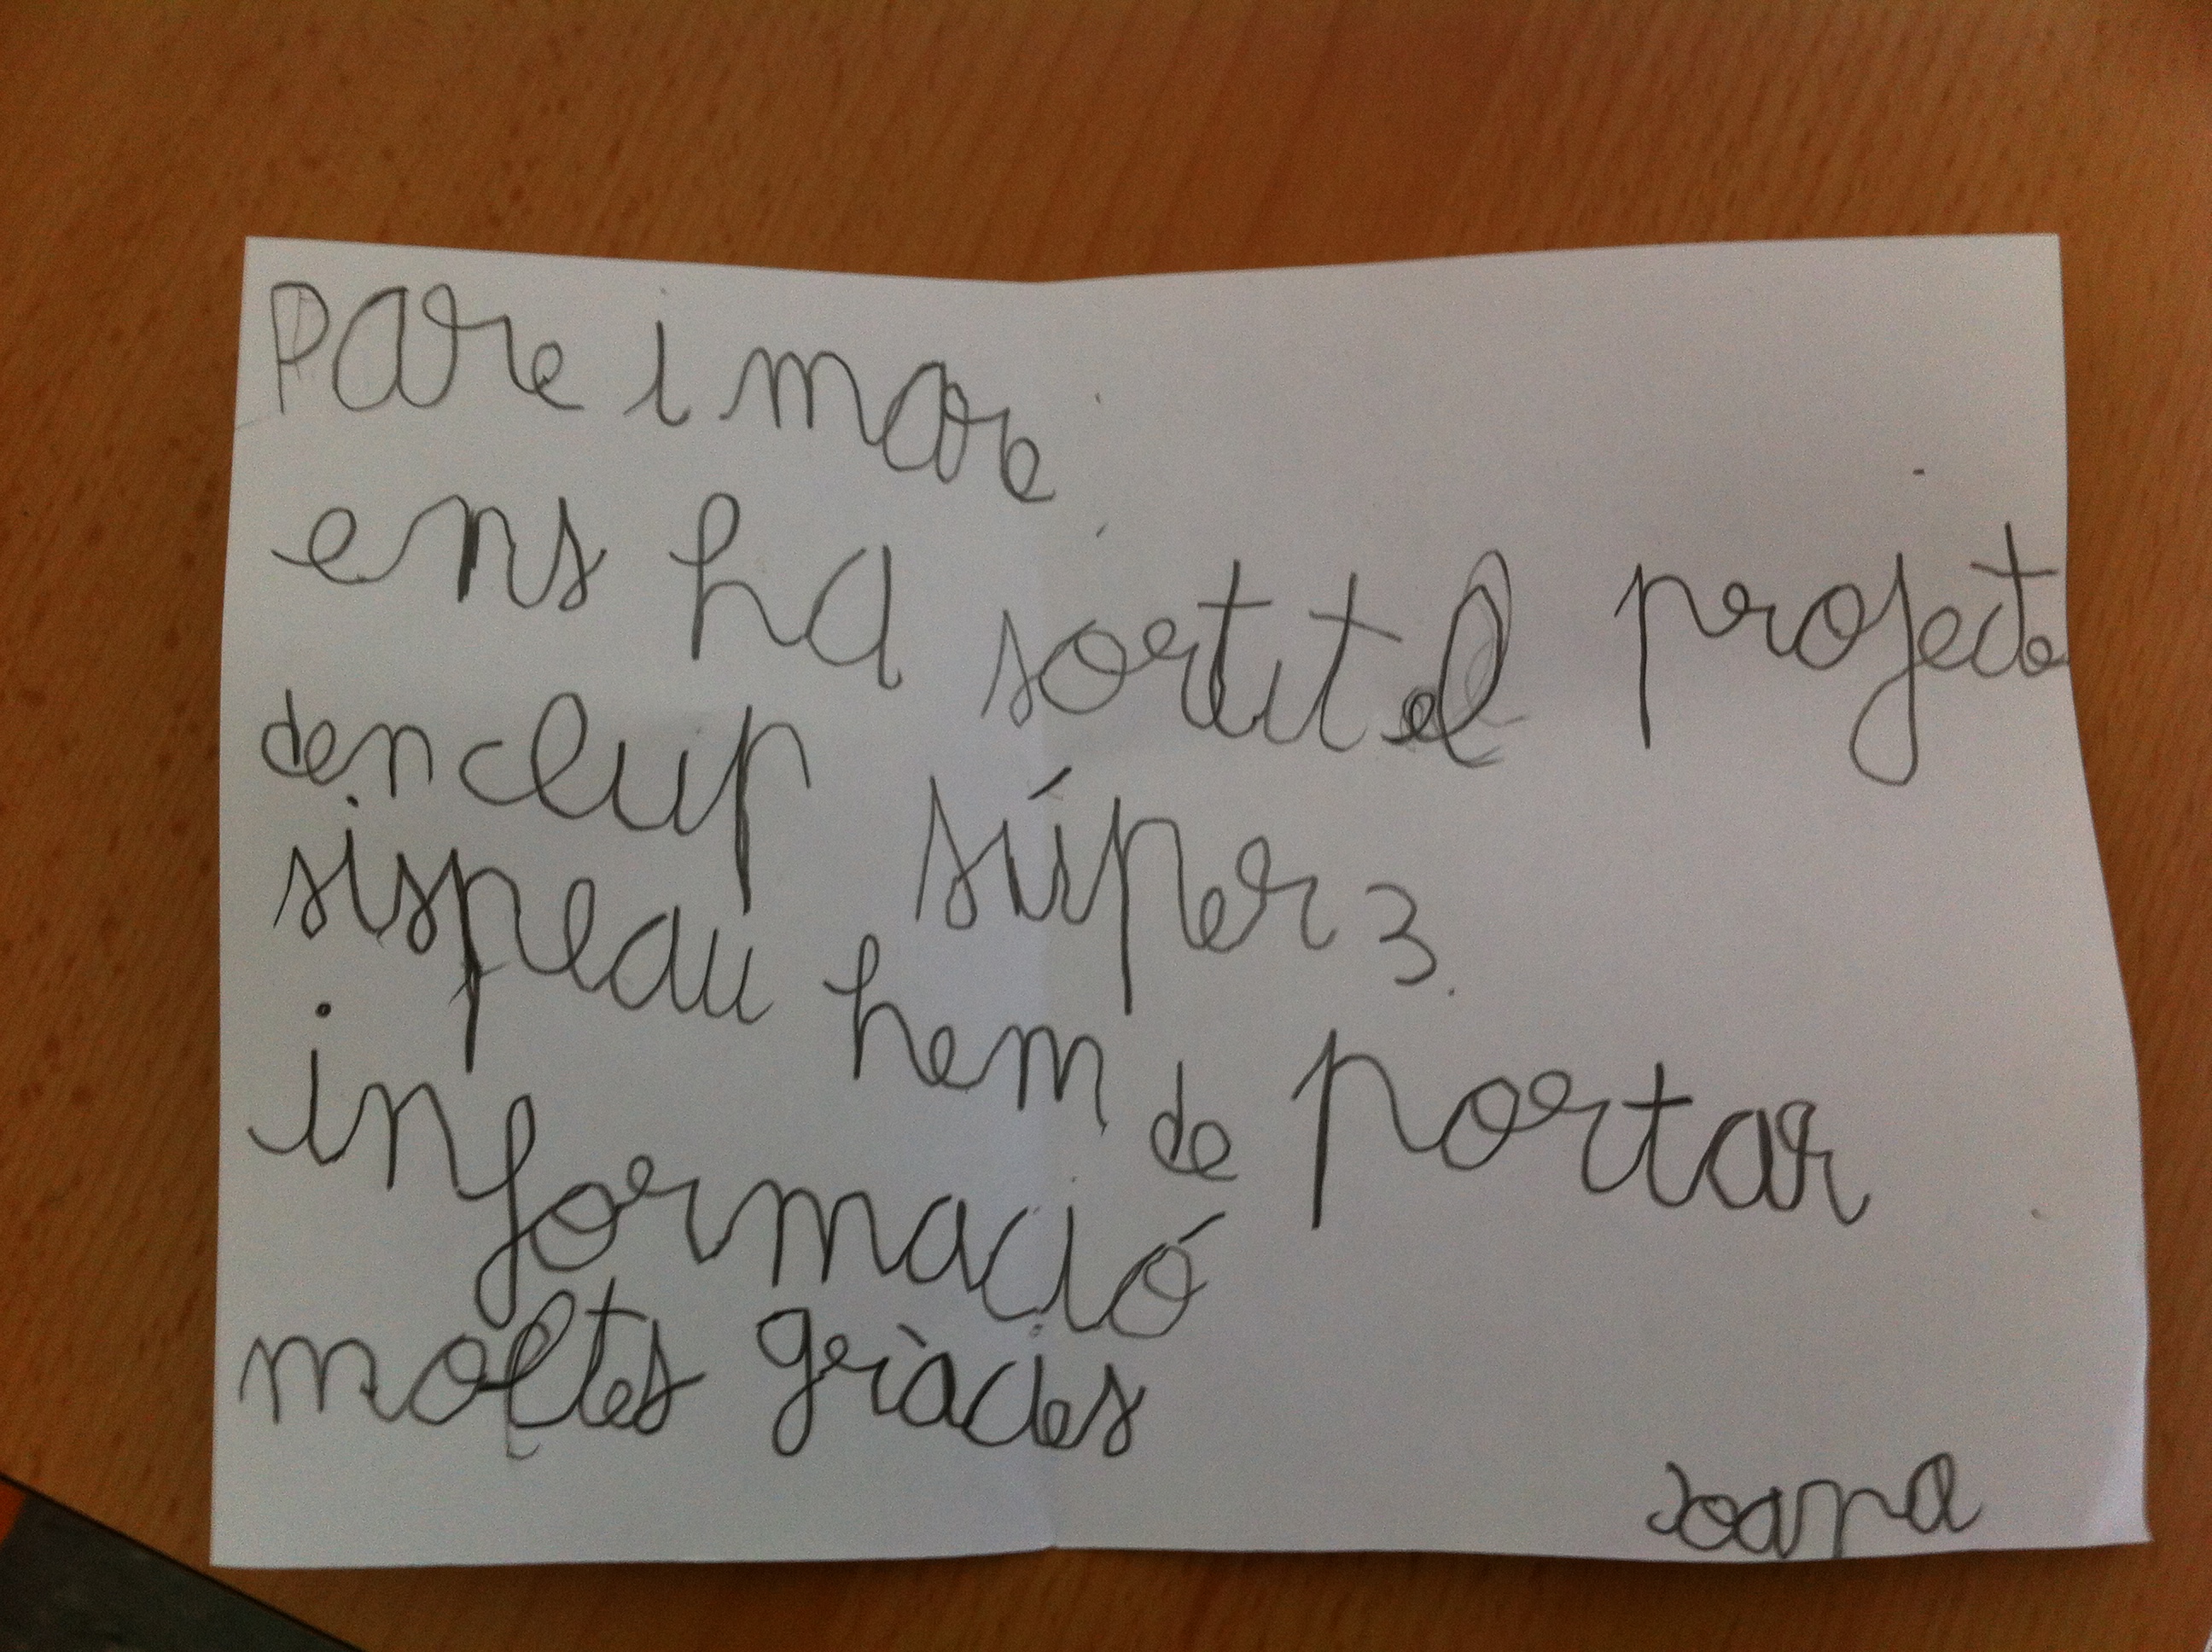 Pare i mare
ens ha sortit el projecte
den clup súper 3.
sispeau hem de portar
informació
moltes gràcies
Joana